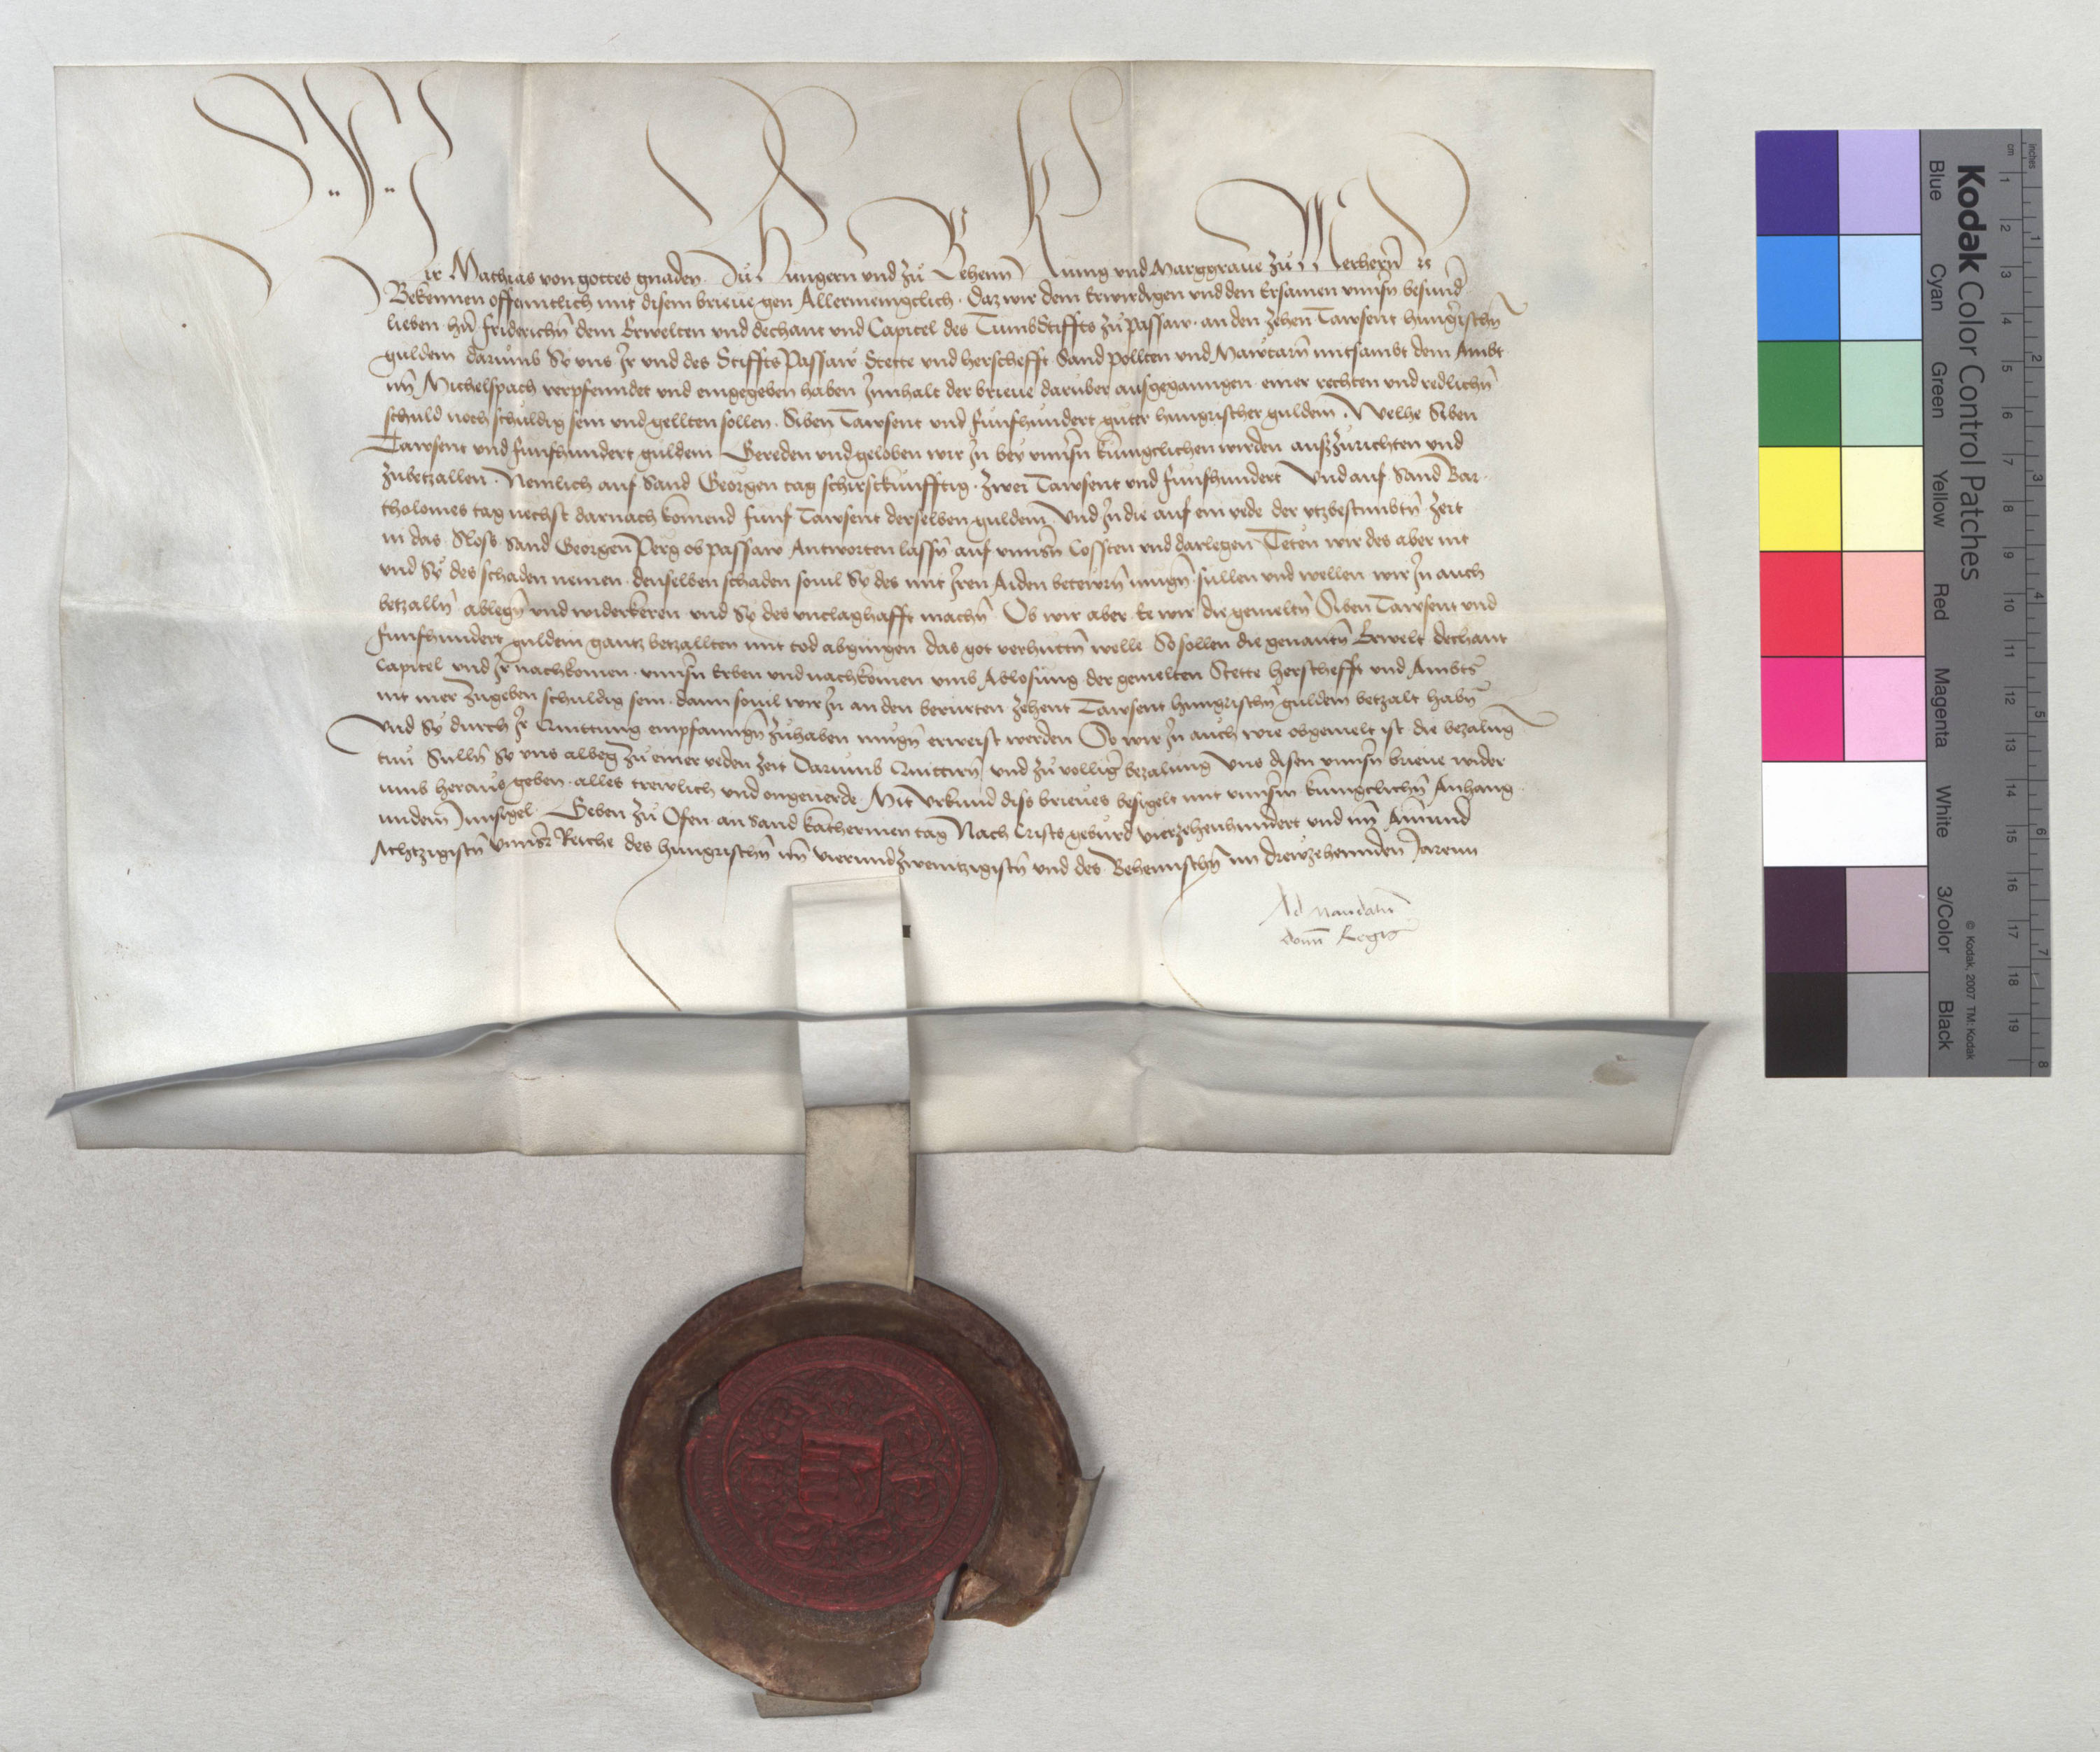 Wir Mathias von gottes gnaden Zů Hungern vnd zů Behem̄ Kunig vnd Marggraue zů Merhern̄ ꝛc
Bekennen offenntlich mit disem brieue gen Allermenigclich · Daz wir dem Erwirdigen vnd den Ersamen vnnsn̄ besund
lieben hn̄ Friderichn̄ dem Erwelten vnd dechant vnd Capitel des TumbStiffts zů passaw · an den zehen Tawsent hungrischn̄
guldem darumb Sy vns Ir vnd des Stiffts Passaw Stette vnd herschefft Sand pollten vnd Mawtarn̄ mitsambt dem Ambt
im̄ Michelspach verpfenndet vnd eingegeben haben Innhalt der brieue daruber ausgeganngen · einer rechten vnd redlichn̄
schuld noch schuldig sein vnd gellten sollen · Siben Tawsent vnd Funfhundert guter hungrischer guldem · Welhe Siben
Tawsent vnd Funfhundert guldem Gereden vnd geloben wir In bey vnnsn̄ kunigclichen wirden aufzůrichten vnd
zubetzallen · Nemlich auf Sand Georgen tag schirstkunfftig · Zwei Tawsent vnd Funfhundert Vnd auf Sand Bar-
tholomes tag nechst darnach komend Funf Tawsent derselben guldem Vnd In die auf ein yede der ytzbestimbtn̄ zeit
in das Sloss Sand Georgen Perg ob passaw Antworten lassn̄ auf vnnsn̄ Cossten vnd darlegen Teten wir des aber nit
vnd Sy des schaden nemen · denselben schaden souil Sy des mit Iren Aiden betewrn̄ mugn̄ sullen vnd wellen wir In auch
betzalln̄ ablegn̄ vnd widerkeren vnd Sy des vnclaghafft machn̄ Ob wir aber Ee wir die gemeltn̄ Siben Tawsent vnd
Funfhundert guldem gantz betzallten mit tod abgingen das got verhuttn̄ welle So sollen die genantn̄ Erwelt dechant
Capitel vnd Ir nachkomen · vnnsn̄ Erben vnd nachkomen vmb Ablosung der gemelten Stette herschefft vnd Ambts
nit mer zugeben schuldig sein · dann souil wir In an den berurten zehent Tawsent hungrischn̄ guldem betzalt habn̄
Vnd Sy durch Ir Quittung empfanngn̄ zůhaben mugn̄ erweist werden So wir In auch wie obgemelt ist die bezalung
tun̄ Sulln̄ Sy vns albeg zů einer yeden zeit Darumb Quittirn̄ vnd zů volliger bezalung Vns disen vnnsn̄ brieue wider
umb heraus geben · alles trewlich vnd ongeuerde · Mit Vrkund diss brieues besigelt mit vnnsm̄ kunigclichn̄ Anhang
undem Innsigel · Geben zů Ofen an Sand Katherinen tag Nach Cristi geburd vierzehenhundert vnd im̄ Ainund
Achtzigistn̄ Vnnsr Reiche des hungrischn̄ im̄ vierundzwentzigistn̄ vnd des Behemischn̄ im drewzehennden Jarenn
Ad mandatū
dom̄ Regis
Kodak Color Control Patches
Blue
Cyan
Green
Yellow
Red
Magenta
White
3/Color
Black
© Kodak, 2007 TM: Kodak
cm 1 2 3 4 5 6 7 8 9 10 11 12 13 14 15 16 17 18 19
inches 1 2 3 4 5 6 7 8